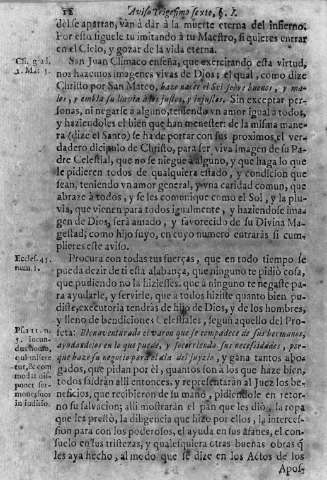 18 Aviso Trigesimo sexto, §. I.
del se apartan, van à dàr à la muerte eterna del infierno.
Por esto siguele tu imitando à tu Maestro, si quieres entrar
en el Cielo, y gozar de la vida eterna.
San Juan Climaco enseña, que exercitando esta virtud,
nos hazemos imagenes vivas de Dios; el qual, como dize
Christo por San Matheo, haze nacer el Sol sobre buenos, y ma-
los, y embia su lluvia à los justos, è injustos. Sin exceptar per-
sonas, ni negarse à alguno, teniendo vn amor igual à todos,
y haziendoles el bien que han menester: de la misma mane-
ra (dize el Santo) se ha de portar con sus proximos, el ver-
dadero dicipulo de Christo, para ser viva imagen de su Pa-
dre Celestial, que no se niegue à alguno, y que haga lo que
le pidieren todos de qualquiera estado, y condicion que
sean, teniendo vn amor general, y vna caridad comun, que
abraze à todos, y se les comunique como el Sol, y la plu-
via, que vienen para todos igualmente, y haziendose ima-
gen de Dios, serà amado, y favorecido de su Divina Ma-
gestad, como hijo suyo, en cuyo numero entraràs si cum-
plieres este aviso.
Eccles. 45.
num. 1.
Procura con todas tus fuerças, que en todo tiempo se
pueda dezir de ti esta alabança, que ninguno te pidiò cosa,
que pudiendo no la hiziesses. que à ninguno te negaste pa-
ra ayudarle, y servirle, que à todos hiziste quanto bien pu-
diste, executoria tendràs de hijo de Dios, y de los hombres,
y lleno de bendiciones Celestiales, segun aquello del Pro-
feta: Bienaventurado el varon que se compadece de sus hermanos,
ayudandolos en lo que puede, y socorriendo sus necesidades, por-
que haze su negocio para el dia del juyzio, y gana tantos abo-
gados, que pidan por èl, quantos son à los que haze bien,
todos saldràn alli entonces, y representaràn al Juez los be-
neficios, que recibieron de su mano, pidiendole en retor-
no su salvacion; alli mostraràn el pan que les diò, la ropa
que les prestò, la diligencia que hizo por ellos, la interces-
sion para con los poderosos, el ayuda en sus afanes, el con-
suelo en sus tristezas, y qualesquiera otras buenas obras q̃
les aya hecho, al modo que se dize en los Actos de los
Apos-